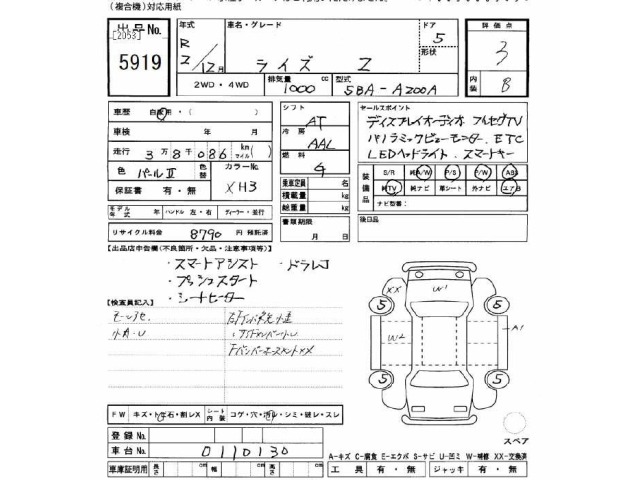 (複合機)対応用紙
出品号No.
[2053]
5919
年式
R
2/12月
車名・グレード
ライズ Z
ドア
5
形状
評価点
3
2WD・4WD
排気量
1000 cc
型式
5BA-A200A
内装
B
車歴 自家用・( )
車検 年 月
走行 3万8千086 km(マイル)
色 パールⅡ
色替
カラーNo.
XH3
保証書 有・無
シフト
AT
冷房
AAL
燃料
乗車定員 名
積載量 kg
総重量 kg
書類期限
月 日
セールスポイント
ディスプレイオーディオ フルセグTV
パノラミックビューモニター. ETC
LEDヘッドライト. スマートキー
装備品
S/R 純A/W P/S P/W ABS
純TV 純ナビ 革シート 外ナビ エアB
ナビ型番:
後日品
モデル年式 年 ハンドル 左・右 ディーラー・並行
リサイクル料金 8790 円 預託済
【出品店申告欄(不良箇所・欠品・注意事項等)】
・スマートアシスト ・ドラレコ
・プッシュスタート
・シートヒーター
【検査員記入】
小キ・U
FバンパーホースメントXX
XX
W1
W2
A1
5
5
5
5
スペア
FW キズ・トビ石・割レX
シート内装
コゲ・穴・汚レ・シミ・破レ・スレ
登録No.
車台No. 0110130
車庫証明用 長さ cm 幅 cm 高さ cm
A-キズ C-腐食 E-エクボ S-サビ U-凹ミ W-補修 XX-交換済
工具 有・無 ジャッキ 有・無